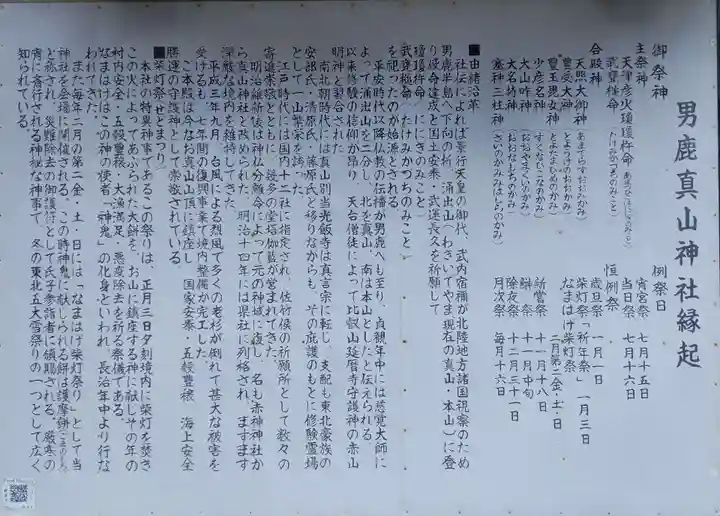 男鹿真山神社縁起
御祭神
主祭神
天津彦火瓊瓊杵命
武甕槌命 (たけみかづちのみこと)
合殿神
天照大御神 (あまてらすおおみかみ)
豊受大神 (とようけのおおかみ)
豊玉毘女神 (とよたまひめのかみ)
少彦名神 (すくなひこなのかみ)
大山咋神 (おおやまくいのかみ)
大名持神 (おおなもちのかみ)
塞神三柱神 (さいのかみみはしらのかみ)
例祭日
宵宮祭 七月十五日
当日祭 七月十六日
恒例祭
歳旦祭 一月一日
柴灯祭「祈年祭」 一月三日
なまはげ柴灯祭
二月第二金・土・日
新嘗祭 十一月十八日
祭 十一月中旬
除夜祭 十二月三十一日
月次祭 毎月十六日
■由緒沿革
社伝によれば景行天皇の御代、武内宿禰が北陸地方諸国視察のため
男鹿半島へ下向の折、湧出山(わきいでやま・現在の真山・本山)に登
り使命達成と国土安泰・武運長久を祈願して
瓊瓊杵命(ににぎのみこと)
武甕槌命(たけみかづちのみこと)
を祀ったのが始源とされる。
平安時代以降仏教の伝播が男鹿へも至り、貞観年中には慈覚大師に
よって湧出山を二分し、北を真山、南は本山としたと伝えられる。
以来修験の信仰が昂り、天台僧徒によって比叡山延暦寺守護神の赤山
明神と習合された。
南北朝時代には真山別当光飯寺は真言宗に転し、支配も東北豪族の
安部氏、清原氏、藤原氏と移りながらも、その庇護のもとに修験霊場
として一山繁栄を誇った。
江戸時代には国内十二社に指定され、佐竹候の祈願所として数々の
寄進崇敬とともに、幾多の堂塔伽藍が営まれてきた。
明治維新後は神仏分離令によって元の神域に復し、名も赤神神社か
ら真山神社と改められた。明治十四年には県社に列格され、ますます
深厳な境内を維持してきた。
平成三年九月、台風による烈風で多くの老杉が倒れて甚大な被害を
受けるも、七年間の復興事業で境内整備が完工した。
ご本殿は今なお真山山頂に鎮座し、国家安泰・五穀豊穣、海上安全
・勝運の守護神として崇敬されている。
■柴灯祭(せとまつり)
本社の特異神事であるこの祭りは、正月三日夕刻境内に柴灯を焚き
この火によってあぶられた大餅を、お山に鎮座する神に献じその年の
村内安全・五穀豊穣・大漁満足・悪疫除去を祈る祭儀である。
なまはげはこの神の使者「神鬼」の化身といわれ、長治年中より行な
われてきた。
また毎年二月の第二金・土・日には「なまはげ柴灯祭り」として当
神社を会場に開催される。この時神鬼に献じられる餅は護摩餅(ごまのもち)
と称され、災難除去の御護符として氏子参詣者に頒布される。厳寒の
宵に斎行される神秘な神事で、冬の東北五大雪祭りの一つとして広く
知られている。